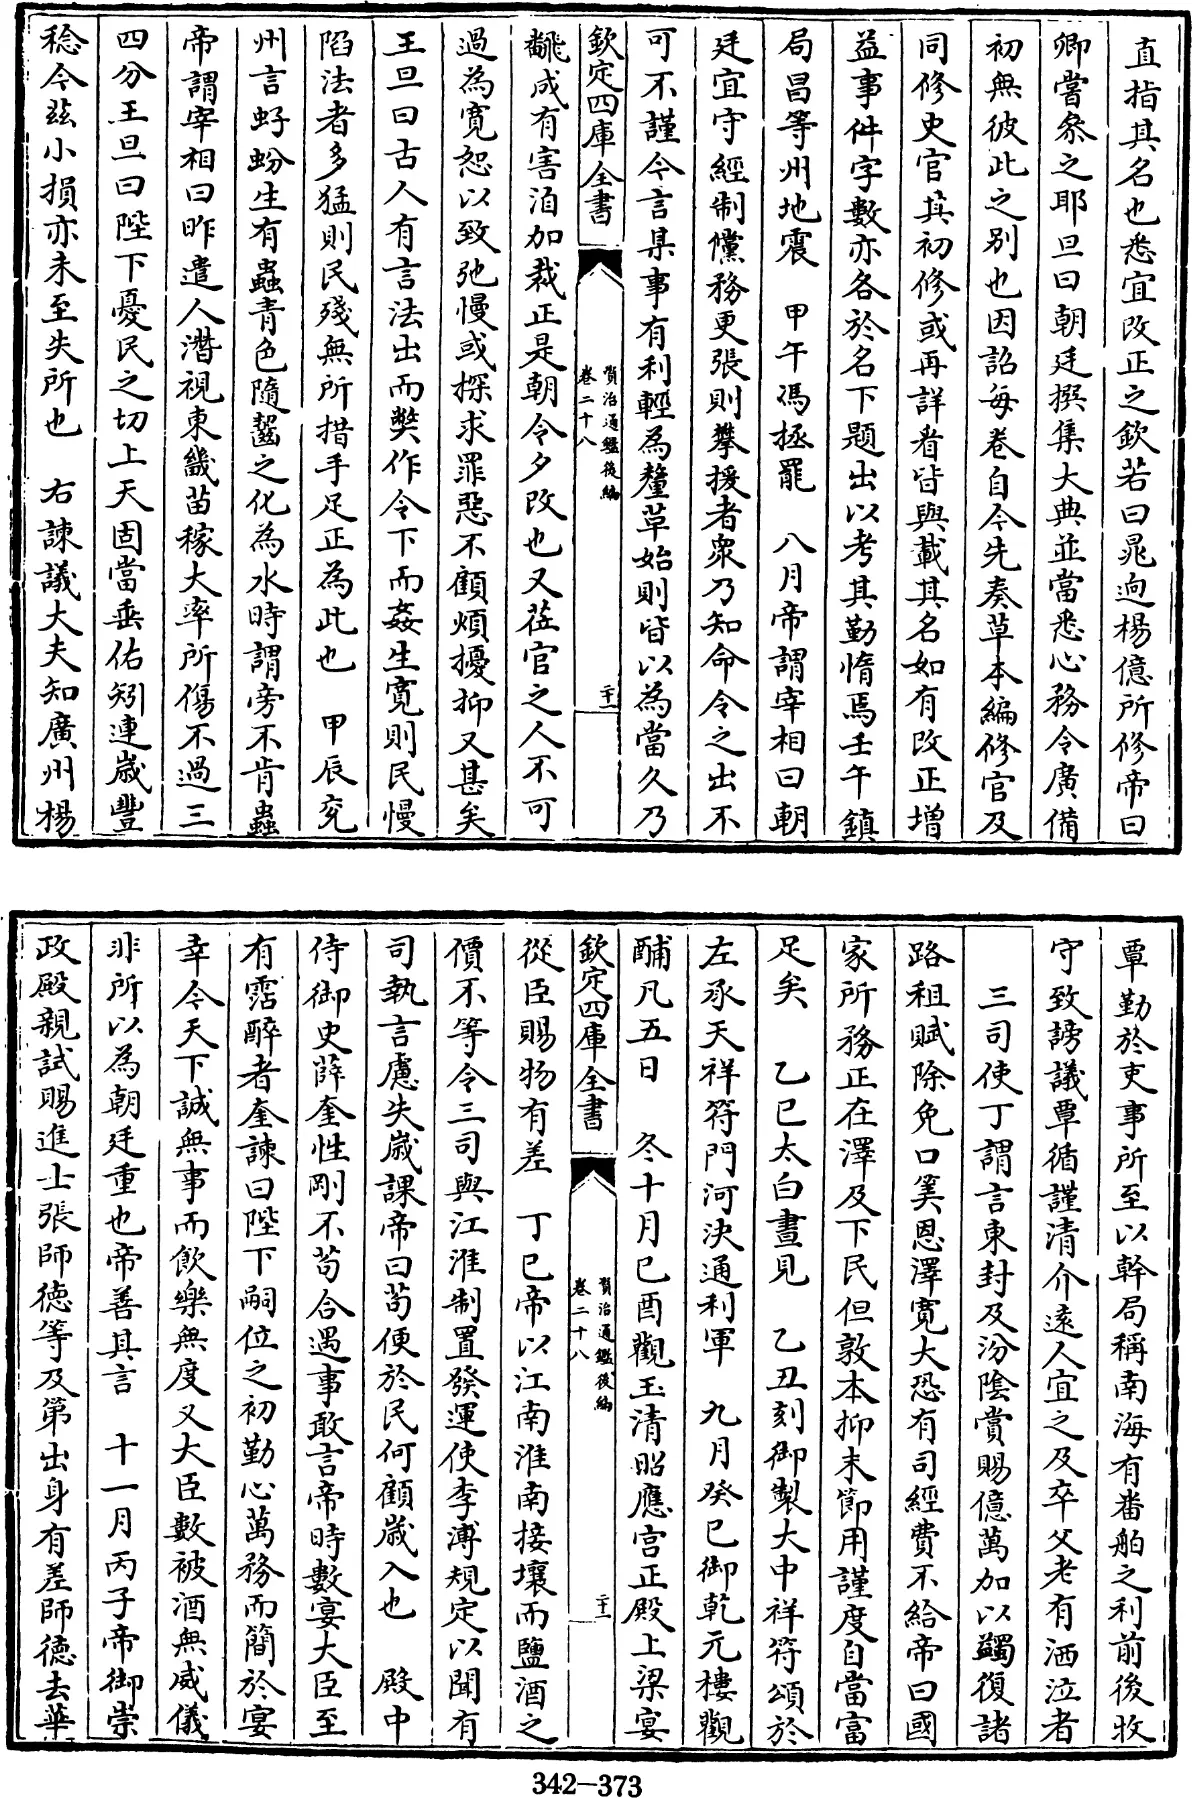 直指其名也悉宜改正之欽若曰晁迥楊億所修帝曰
卿嘗叅之耶旦曰朝廷撰集大典並當悉心務令廣備
初無彼此之别也因詔每卷自今先奏草本編修官及
同修史官其初修或再詳看皆具載其名如有改正增
益事件字數亦各於名下題出以考其勤惰焉壬午鎮
局昌等州地震　甲午馮拯罷　八月帝謂宰相曰朝
廷宜守經制儻務更張則攀援者衆乃知命令之出不
可不謹今言某事有利輕為釐革始則皆以為當久乃
欽定四庫全書
資治通鑑後編
卷二十八
二十一
翻成有害洎加裁正是朝令夕改也又莅官之人不可
過為寛恕以致弛慢或探求罪惡不顧煩擾抑又甚矣
王旦曰古人有言法出而獘作令下而姦生寛則民慢
陷法者多猛則民殘無所措手足正為此也　甲辰兖
州言蚜蚡生有蟲青色隨齧之化為水時謂旁不肯蟲
帝謂宰相曰昨遣人潛視東畿苗稼大率所傷不過三
四分王旦曰陛下憂民之切上天固當垂佑矧連歲豐
稔今茲小損亦未至失所也　右諫議大夫知廣州楊
覃勤於吏事所至以幹局稱南海有畨舶之利前後牧
守致謗議覃循謹清介遠人宜之及卒父老有洒泣者
三司使丁謂言東封及汾陰賞賜億萬加以蠲復諸
路租賦除免口筭恩澤寛大恐有司經費不給帝曰國
家所務正在澤及下民但敦本抑末節用謹度自當富
足矣　乙巳太白晝見　乙丑刻御製大中祥符頌於
左承天祥符門河決通利軍　九月癸巳御乾元樓觀
酺凡五日　冬十月己酉觀玉清昭應宫正殿上梁宴
欽定四庫全書
資治通鑑後編
卷二十八
二十二
從臣賜物有差　丁巳帝以江南淮南接壤而鹽酒之
價不等令三司與江淮制置發運使李溥規定以聞有
司執言慮失歲課帝曰苟便於民何顧歲入也　殿中
侍御史薛奎性剛不苟合遇事敢言帝時數宴大臣至
有霑醉者奎諫曰陛下嗣位之初勤心萬務而簡於宴
幸今天下誠無事而飲樂無度又大臣數被酒無威儀
非所以為朝廷重也帝善其言　十一月丙子帝御崇
政殿親試賜進士張師德等及第出身有差師德去華
342-373